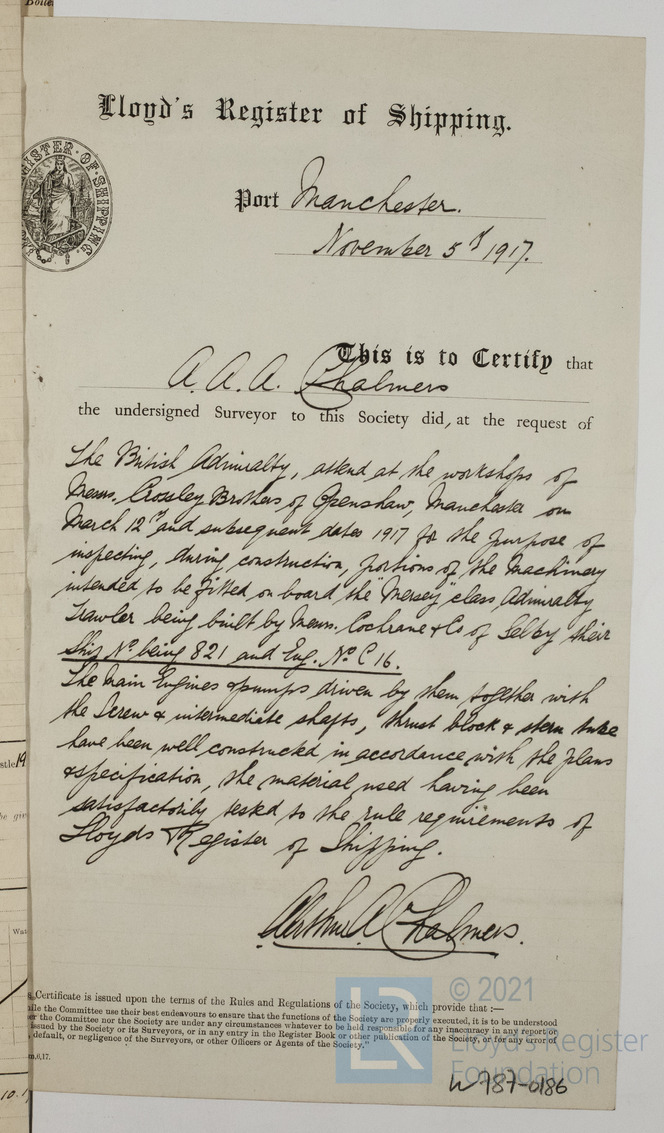 Boiler
Lloyd's Register of Shipping.
REGISTER OF SHIPPING.
Port Manchester.
November 5th 1917.
This is to Certify that
A. A. A. Chalmers
the undersigned Surveyor to this Society did, at the request of
The British Admiralty, attend at the workshops of
Messrs. Crossley Brothers of Openshaw, Manchester on
March 12th and subsequent dates 1917 for the purpose of
inspecting, during construction, portions of the machinery
intended to be fitted on board the "Mersey" class Admiralty
Trawler being built by Messrs. Cochrane & Co of Selby their
Ship No being 821 and Eng. No. C 16.
The main Engines & pumps driven by them together with
the Screw & intermediate shafts, thrust block & stern tube
have been well constructed in accordance with the plans
& specification, the material used having been
satisfactorily tested to the rule requirements of
Lloyds Register of Shipping.
Arthur A Chalmers.
Certificate is issued upon the terms of the Rules and Regulations of the Society, which provide that :—
the Committee use their best endeavours to ensure that the functions of the Society are properly executed, it is to be understood
the Committee nor the Society are under any circumstances whatever to be held responsible for any inaccuracy in any report or
issued by the Society or its Surveyors, or in any entry in the Register Book or other publication of the Society, or for any error of
default, or negligence of the Surveyors, or other Officers or Agents of the Society."
6,17.
LR
© 2021
Lloyd's Register
Foundation
W787-0186